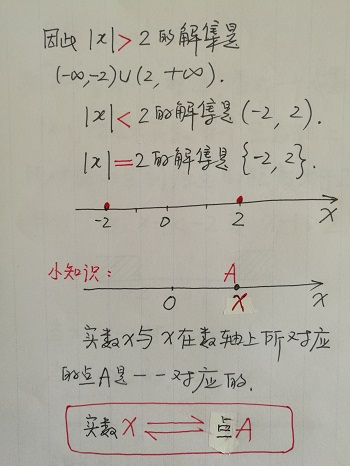 因此 |x|>2的解集是
(-∞,-2)∪(2,+∞).
|x|<2的解集是(-2,2).
|x|=2的解集是{-2,2}.
-2 0 2 x
小知识:
A
0 x x
实数x与x在数轴上所对应
的点A是一一对应的.
实数x ⇌ 点A